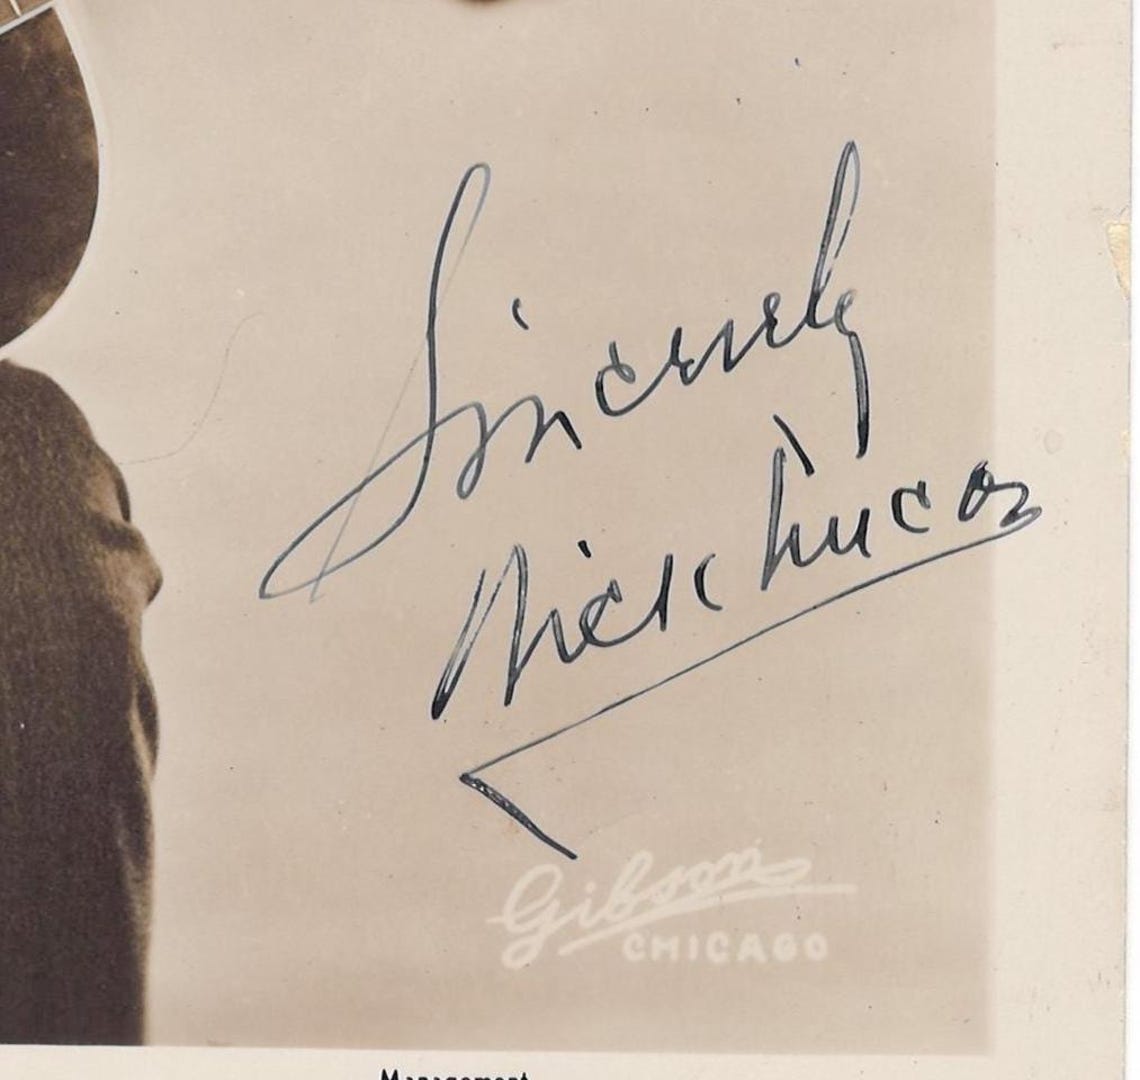 Sincerely
Nick Lucas
Gibson
CHICAGO
Management